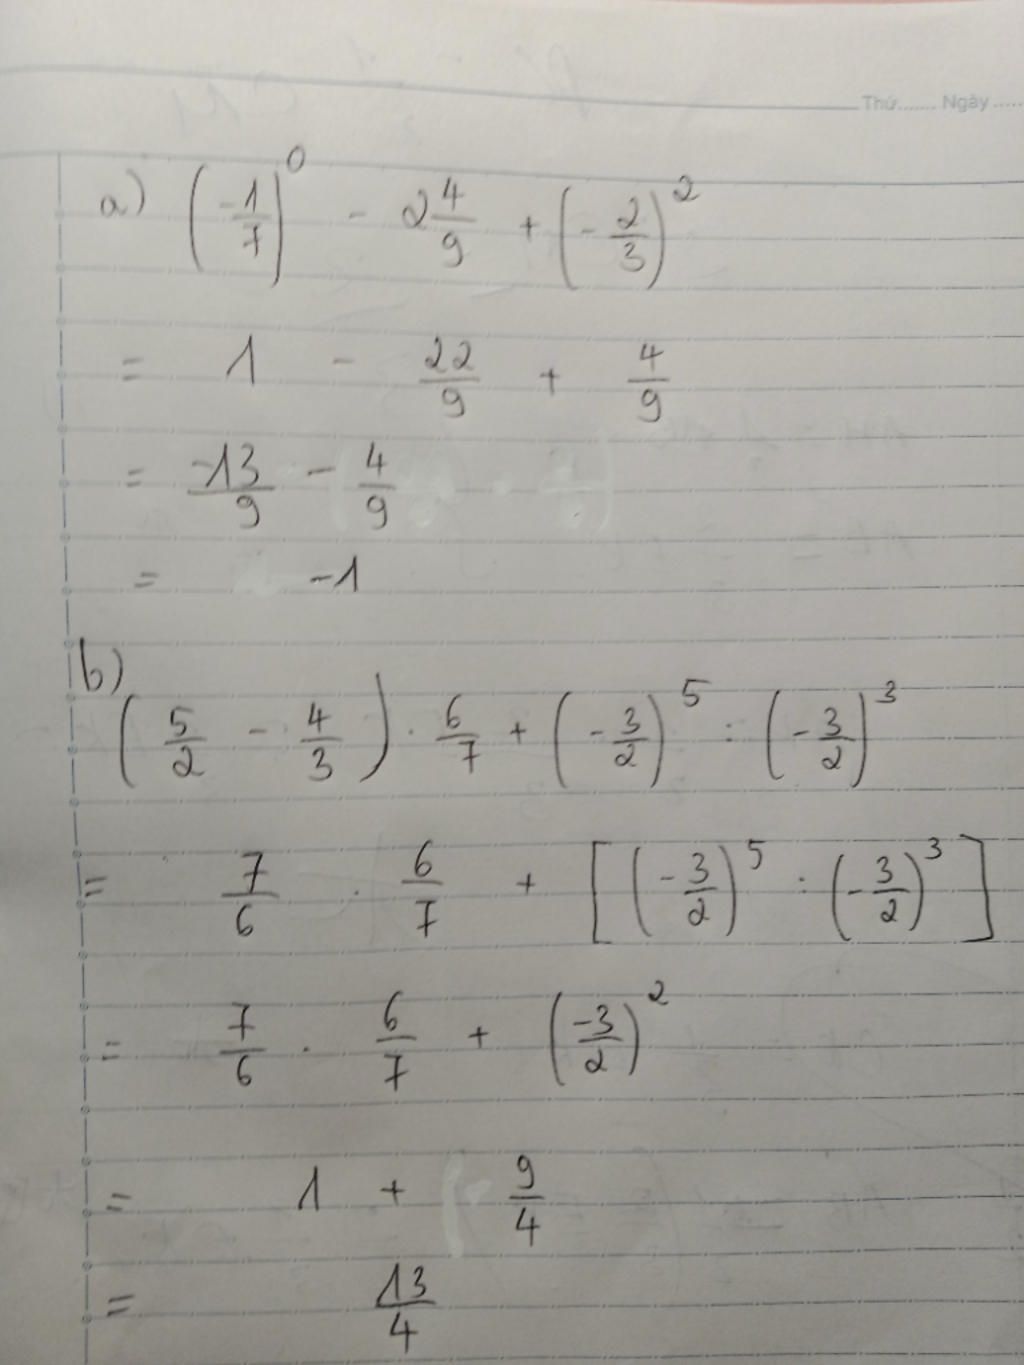 Thứ....... Ngày.....
a) (-1/7)^0 - 2 4/9 + (- 2/3)^2
= 1 - 22/9 + 4/9
= -13/9 - 4/9
= -1
b)
(5/2 - 4/3) . 6/7 + (- 3/2)^5 : (- 3/2)^3
= 7/6 . 6/7 + [(- 3/2)^5 : (- 3/2)^3]
= 7/6 . 6/7 + (-3/2)^2
= 1 + 9/4
= 13/4